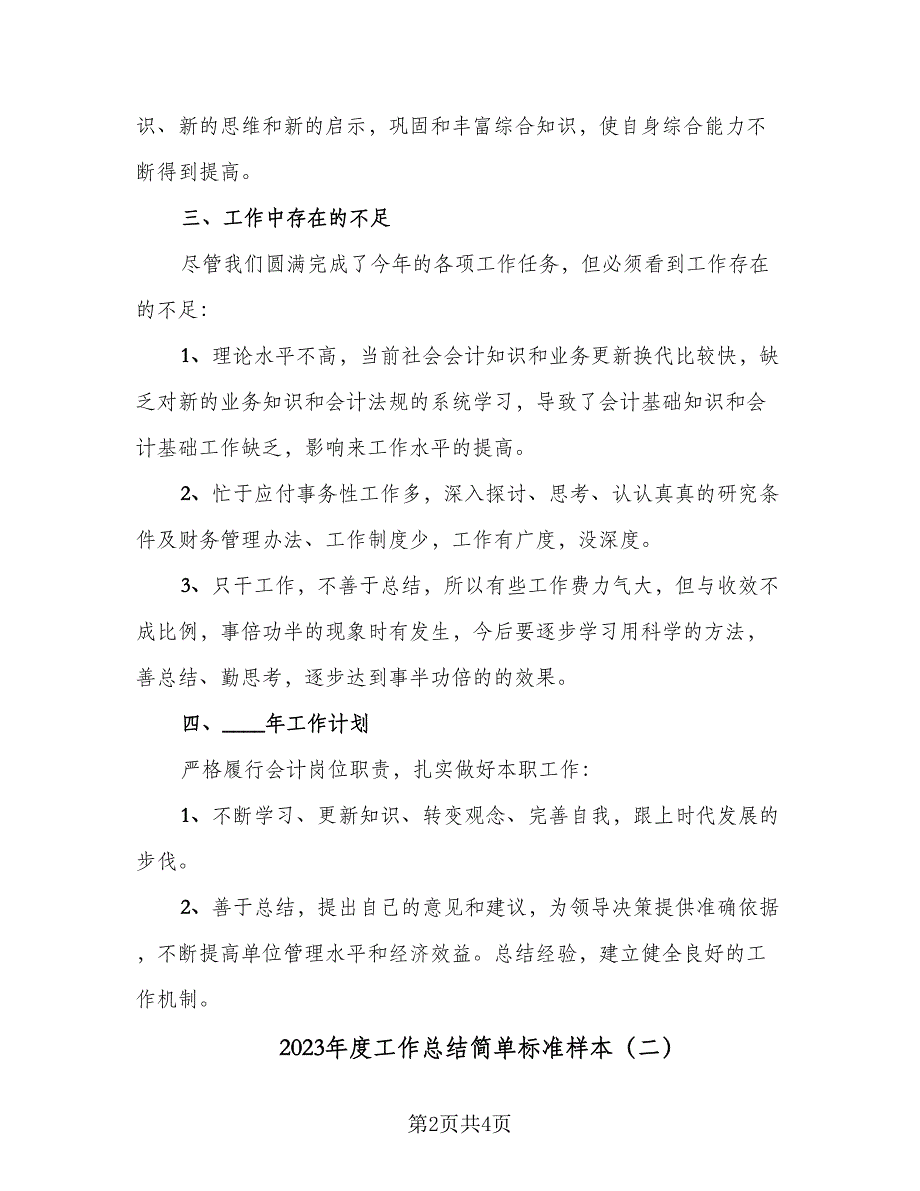 识、新的思维和新的启示，巩固和丰富综合知识，使自身综合能力不
断得到提高。
三、工作中存在的不足
尽管我们圆满完成了今年的各项工作任务，但必须看到工作存在
的不足：
1、理论水平不高，当前社会会计知识和业务更新换代比较快，缺
乏对新的业务知识和会计法规的系统学习，导致了会计基础知识和会
计基础工作缺乏，影响来工作水平的提高。
2、忙于应付事务性工作多，深入探讨、思考、认认真真的研究条
件及财务管理办法、工作制度少，工作有广度，没深度。
3、只干工作，不善于总结，所以有些工作费力气大，但与收效不
成比例，事倍功半的现象时有发生，今后要逐步学习用科学的方法，
善总结、勤思考，逐步达到事半功倍的的效果。
四、____年工作计划
严格履行会计岗位职责，扎实做好本职工作：
1、不断学习、更新知识、转变观念、完善自我，跟上时代发展的
步伐。
2、善于总结，提出自己的意见和建议，为领导决策提供准确依据
，不断提高单位管理水平和经济效益。总结经验，建立健全良好的工
作机制。
2023年度工作总结简单标准样本（二）
第2页共4页